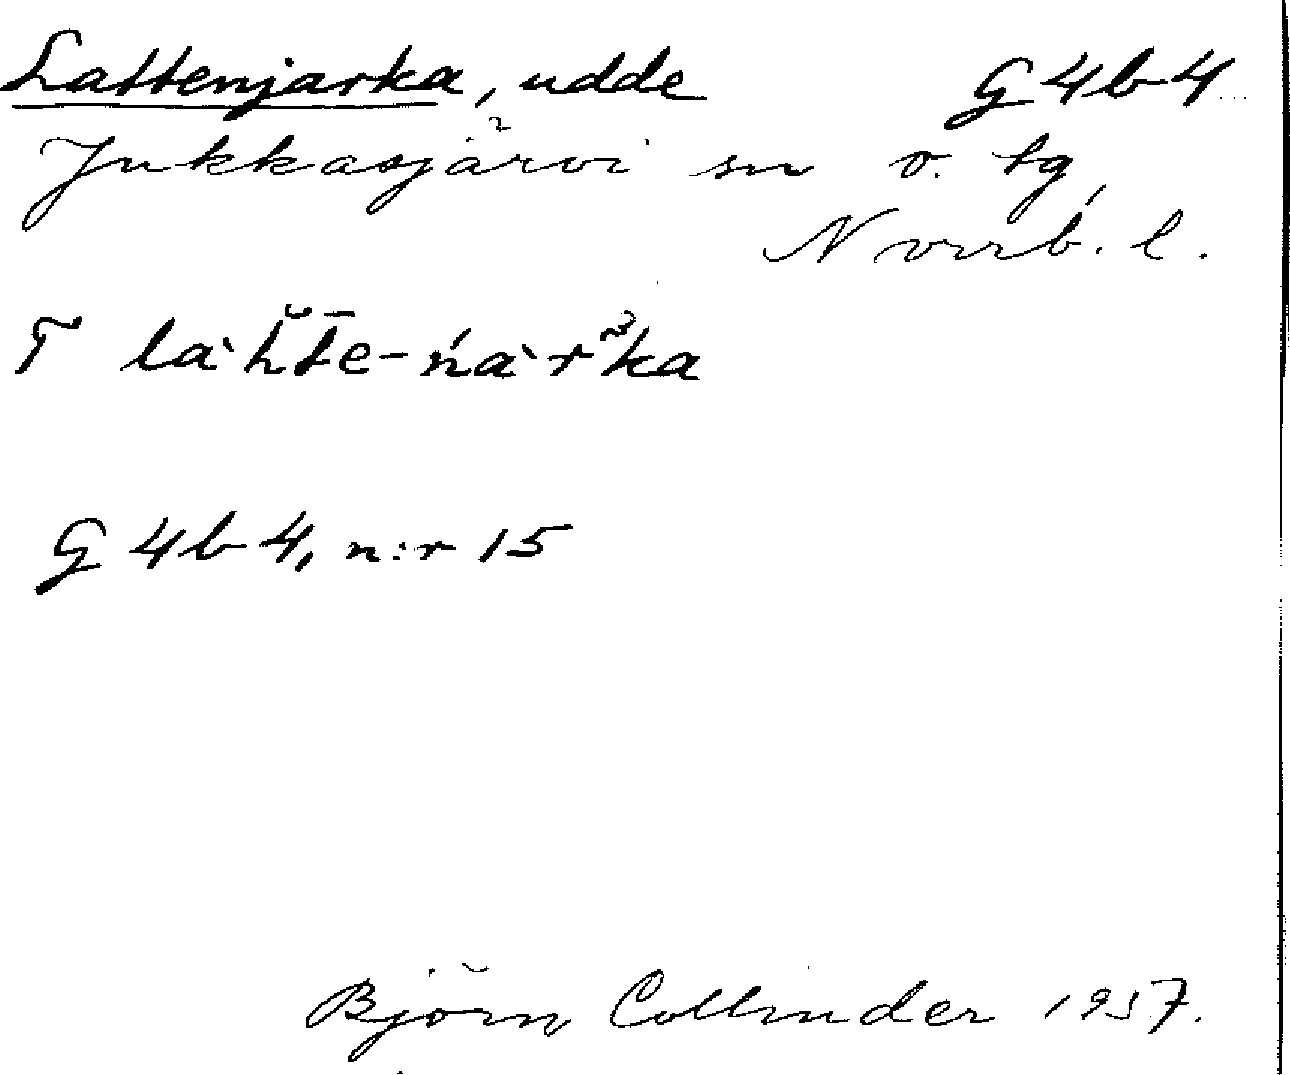 Lattenjarka, udde G4b4
Jukkasjärvi sn v. tg,
Norrb. l.
T
G 4b 4, n:r 15
Björn Collinder 1957.